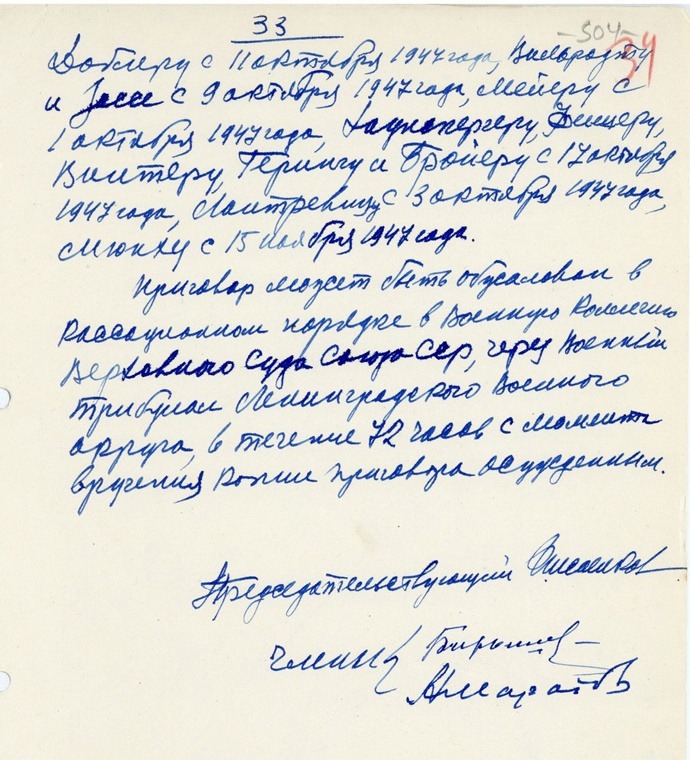 33
-504-
34
с 11 октября 1947 года, Вильродту
и Йоссе с 9 октября 1947 года, Мейеру с
1 октября 1947 года, Лаунспергеру, Фишеру,
Винтеру, Герингу и Бройеру с 17 октября
1947 года, с 3 октября 1947 года,
Мюнху с 15 ноября 1947 года.
Приговор может быть обжалован в
кассационном порядке в Военную Коллегию
Верховного Суда Союза ССР, через Военный
трибунал Ленинградского Военного
округа, в течение 72 часов с момента
вручения копии приговора осужденным.
Председательствующий
Члены